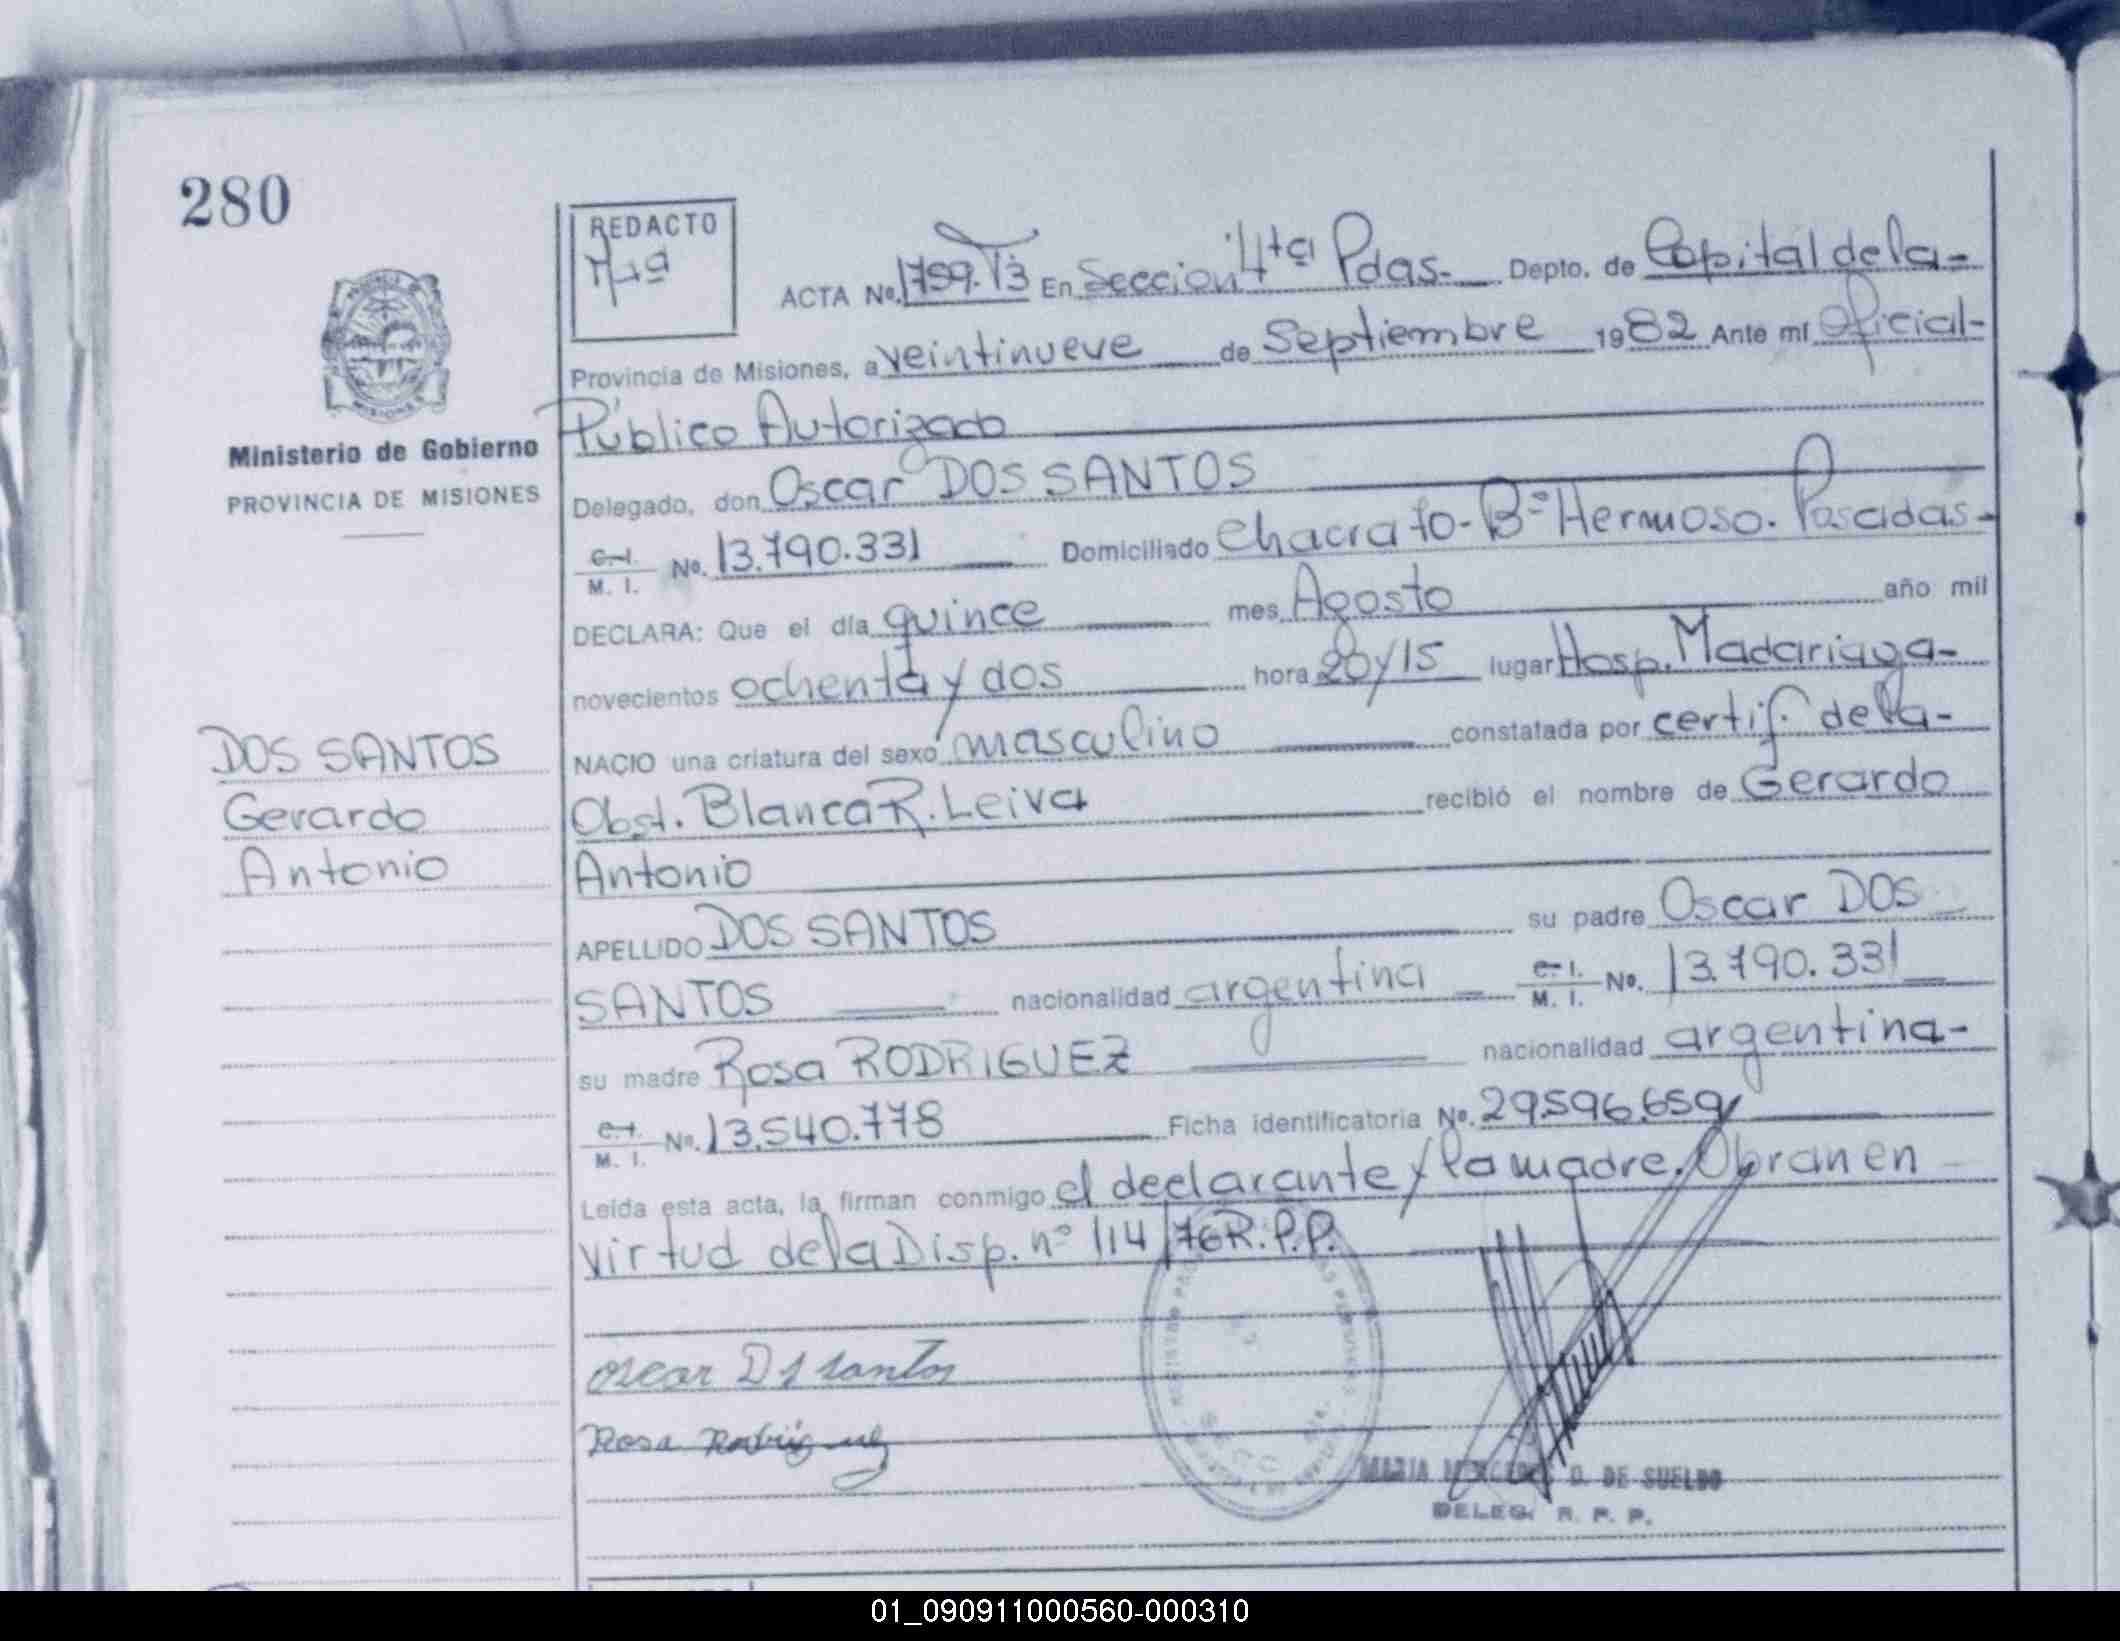 280
REDACTO
ACTA No. 1759. T3 En Sección 4ta Pdas.- Depto. de Capital de la-
Provincia de Misiones, a veintinueve de Septiembre 1982 Ante mí Oficial-
Público Autorizado
Ministerio de Gobierno
PROVINCIA DE MISIONES
Delegado, don Oscar DOS SANTOS
C. I.
M. I. No. 13.790.331 Domiciliado Chacra 70- Bº Hermoso. Posadas-
DECLARA: Que el día quince mes Agosto año mil
novecientos ochenta y dos hora 20 y 15 lugar Hosp. Madariaga-
NACIO una criatura del sexo masculino constatada por certif. de la-
Obst. Blanca R. Leiva recibió el nombre de Gerardo
Antonio
DOS SANTOS
Gerardo
Antonio
APELLIDO DOS SANTOS su padre Oscar DOS
SANTOS nacionalidad argentina C. I.
M. I. No. 13.790.331
su madre Rosa RODRIGUEZ nacionalidad argentina-
C. I.
M. I. No. 13.540.778 Ficha identificatoria No. 29.596.659
Leída esta acta, la firman conmigo el declarante y la madre. Obran en
virtud de la Disp. nº 114/76 R.P.P.
Oscar Ds santos
Rosa Rodriguez
MARIA MERCEDES D. DE SUELDO
DELEG. R. P. P.
01_090911000560-000310